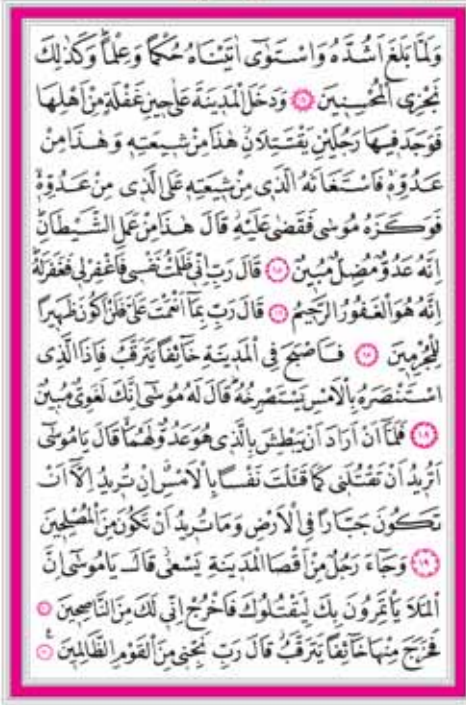 وَلَمَّا بَلَغَ اَشُدَّهُ وَاسْتَوٰٓى اٰتَيْنَاهُ حُكْمًا وَعِلْمًا وَكَذٰلِكَ
نَجْزِى الْمُحْسِنِينَ ﴿١٤﴾ وَدَخَلَ الْمَدِينَةَ عَلٰى حِينِ غَفْلَةٍ مِنْ اَهْلِهَا
فَوَجَدَ فِيهَا رَجُلَيْنِ يَقْتَتِلَانِ هٰذَا مِنْ شِيعَتِهٖ وَهٰذَا مِنْ
عَدُوِّهٖ فَاسْتَغَاثَهُ الَّذٖى مِنْ شِيعَتِهٖ عَلَى الَّذٖى مِنْ عَدُوِّهٖ
فَوَكَزَهُ مُوسٰى فَقَضٰى عَلَيْهِ قَالَ هٰذَا مِنْ عَمَلِ الشَّيْطَانِ
اِنَّهُ عَدُوٌّ مُضِلٌّ مُبِينٌ ﴿١٥﴾ قَالَ رَبِّ اِنّٖى ظَلَمْتُ نَفْسٖى فَاغْفِرْ لٖى فَغَفَرَ لَهُ
اِنَّهُ هُوَ الْغَفُورُ الرَّحِيمُ ﴿١٦﴾ قَالَ رَبِّ بِمَٓا اَنْعَمْتَ عَلَىَّ فَلَنْ اَكُونَ ظَهِيرًا
لِلْمُجْرِمِينَ ﴿١٧﴾ فَاَصْبَحَ فِى الْمَدِينَةِ خَٓائِفًا يَتَرَقَّبُ فَاِذَا الَّذِى
اسْتَنْصَرَهُ بِالْاَمْسِ يَسْتَصْرِخُهُ قَالَ لَهُ مُوسٰٓى اِنَّكَ لَغَوِىٌّ مُبِينٌ
﴿١٨﴾ فَلَمَّٓا اَنْ اَرَادَ اَنْ يَبْطِشَ بِالَّذٖى هُوَ عَدُوٌّ لَهُمَا قَالَ يَا مُوسٰٓى
اَتُرِيدُ اَنْ تَقْتُلَنٖى كَمَا قَتَلْتَ نَفْسًا بِالْاَمْسِ اِنْ تُرِيدُ اِلَّٓا اَنْ
تَكُونَ جَبَّارًا فِى الْاَرْضِ وَمَا تُرِيدُ اَنْ تَكُونَ مِنَ الْمُصْلِحِينَ
﴿١٩﴾ وَجَٓاءَ رَجُلٌ مِنْ اَقْصَا الْمَدِينَةِ يَسْعٰى قَالَ يَا مُوسٰٓى اِنَّ
الْمَلَاَ يَأْتَمِرُونَ بِكَ لِيَقْتُلُوكَ فَاخْرُجْ اِنّٖى لَكَ مِنَ النَّاصِحِينَ ﴿٢٠﴾
فَخَرَجَ مِنْهَا خَٓائِفًا يَتَرَقَّبُ قَالَ رَبِّ نَجِّنٖى مِنَ الْقَوْمِ الظَّالِمِينَ ﴿٢١﴾